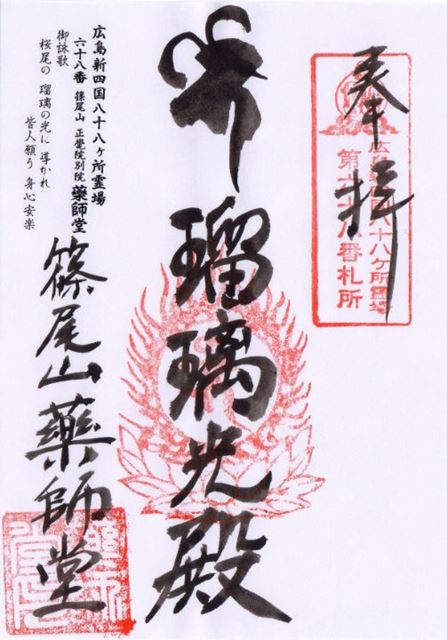 奉拝
広島新四国八十八ヶ所霊場
第六十八番札所
瑠璃光殿
広島新四国八十八ヶ所霊場
六十八番 篠尾山 正覺院別院 藥師堂
御詠歌
桜尾の 瑠璃の光に 導かれ
皆人願う 身心安楽
篠尾山藥師堂